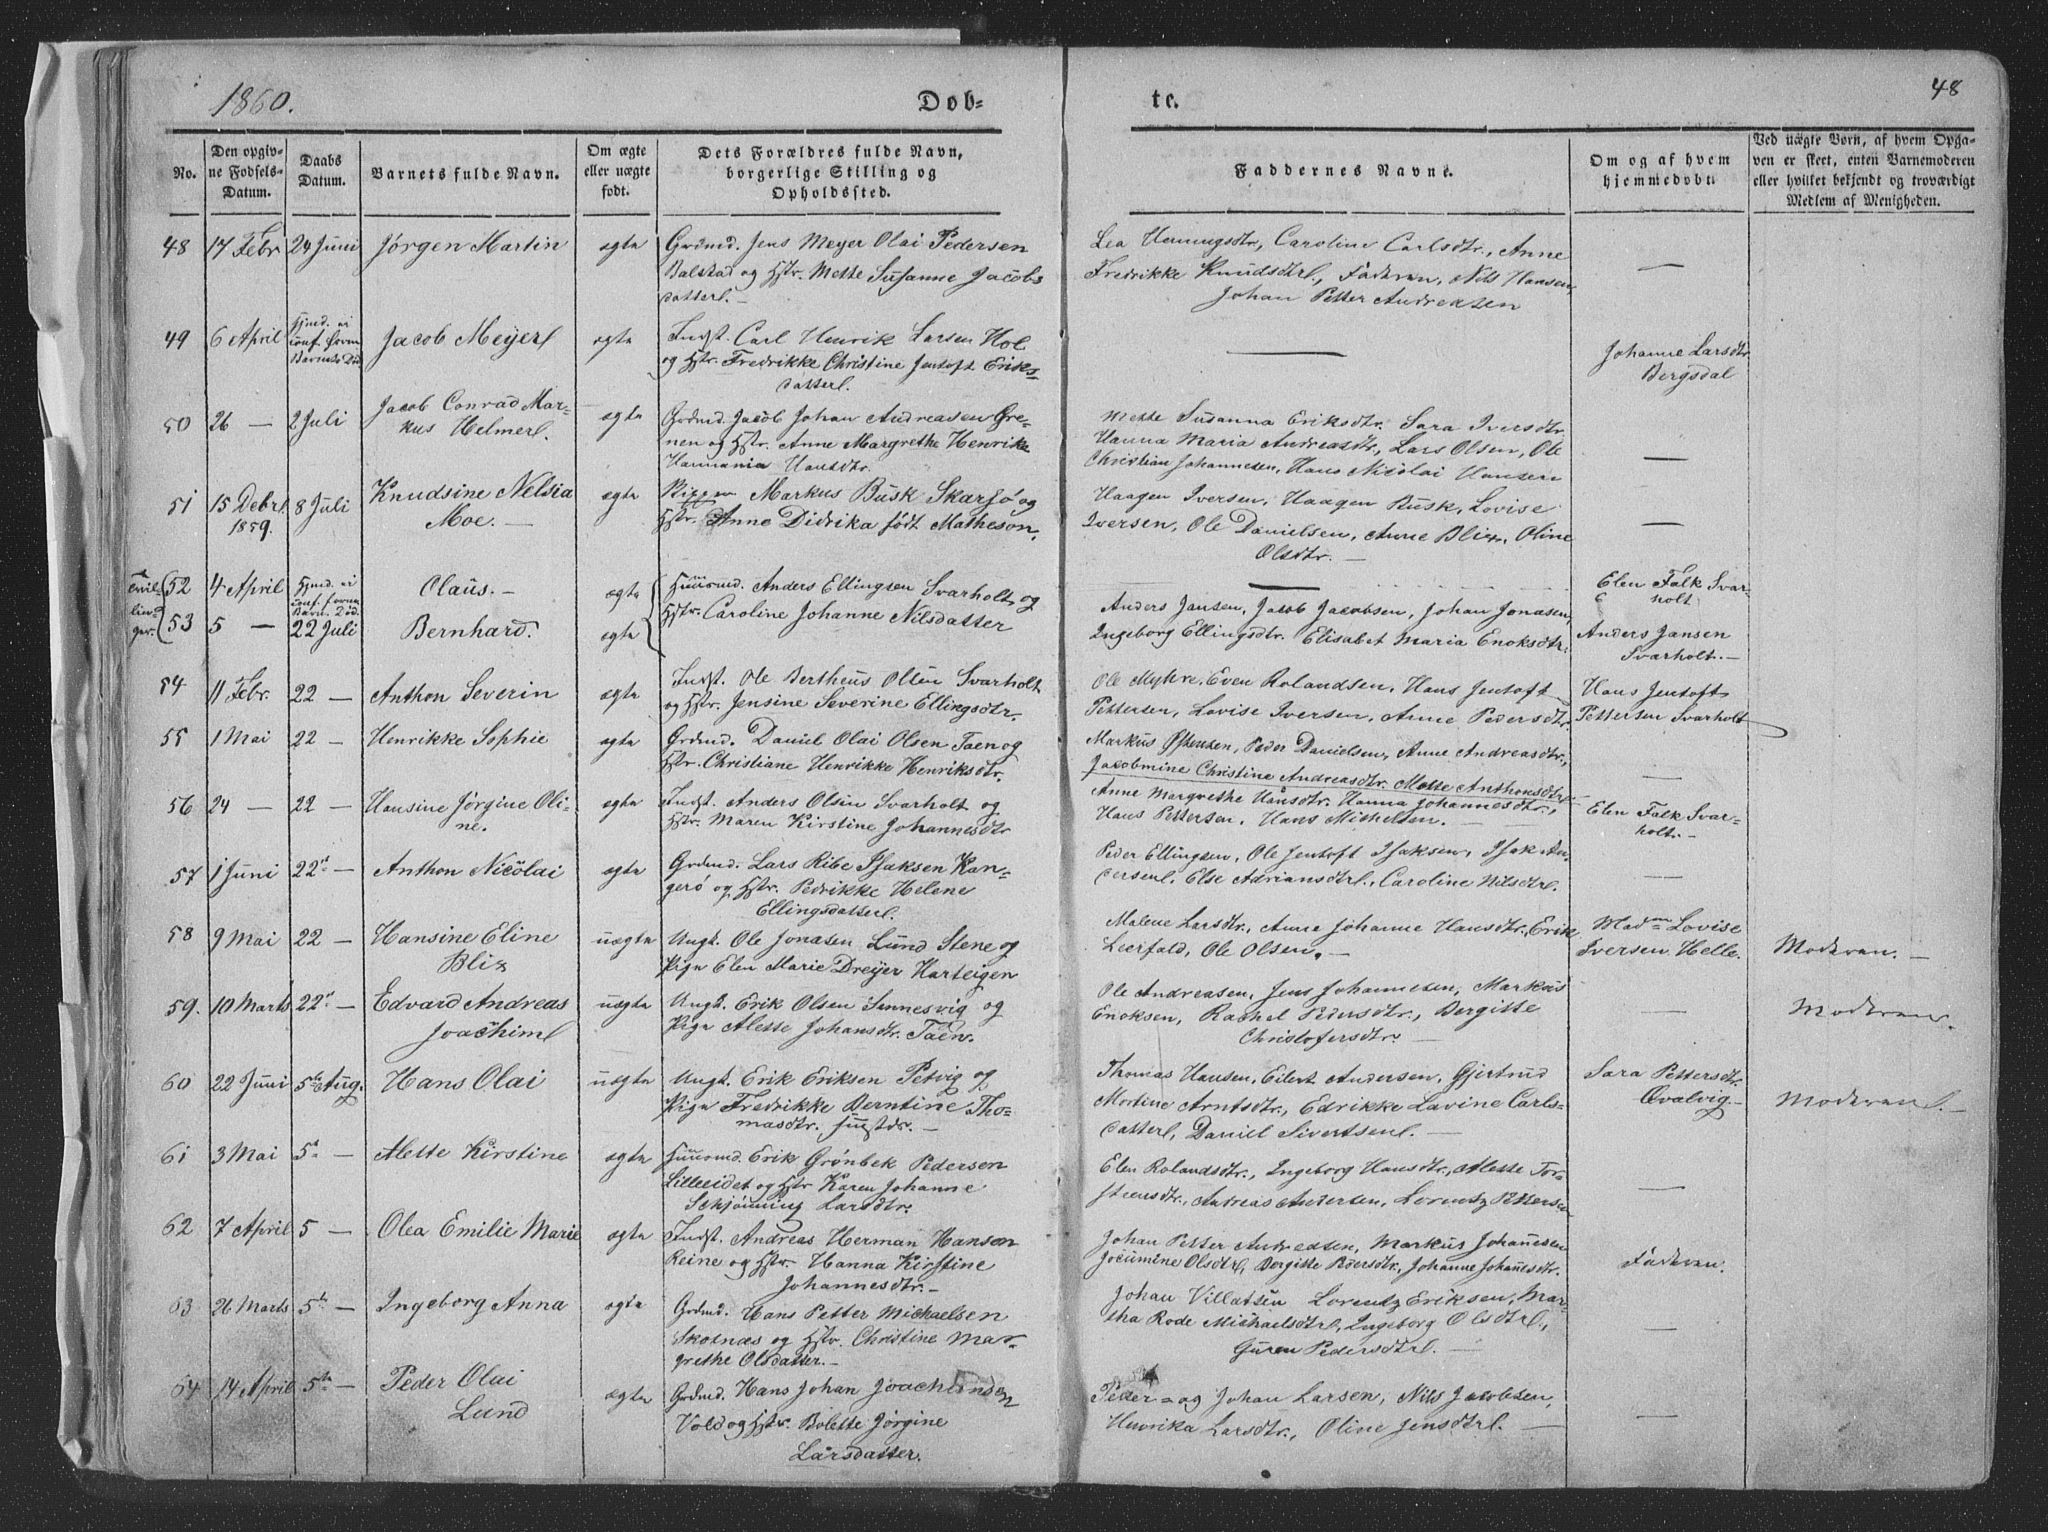 1860.
Døb-
te.
48
No.
Den opgiv-
ne Fødsels-
Datum.
Daabs
Datum.
Barnets fulde Navn.
Om ægte
eller uægte
født.
Dets Forældres fulde Navn,
borgerlige Stilling og
Opholdssted.
Faddernes Navne.
Om og af hvem
hjemmedøbt.
Ved uægte Børn, af hvem Opga-
ven er skeet, enten Barnemoderen
eller hvilket bekjendt og troværdigt
Medlem af Menigheden.
48 17 Febr 24 Juni Jørgen Martin ægte Grdmd. Jens Meyer Olai Pedersen
Balstad og Hstr. Mette Susanne Jacobs
datter. —
Lea Henningsdtr, Caroline Carlsdtr., Anne
Fredrikke Knudsdtr., Faderen, Nils Hansen,
Johan Petter Andreasen
—
49 6 April Hjmd. ei
conf. foren
Barnets Død
Jacob Meyer ægte Indst. Carl Henrik Larsen Hol
og Hstr. Fredrikke Christine Jentoft Eriks-
datter.
—
Johanne Larsdtr.
Bergsdal
50 26 — 2 Juli Jacob Conrad Mar-
kus Helmer. ægte Grdmd. Jacob Johan Andreasen Gre-
nen og Hstr. Anne Margrethe Henrike
Hannania Hansdtr.
Mette Susanna Eriksdtr. Sara Iversdtr.
Hanna Maria Andreasdtr., Lars Olsen, Ole
Christian Johannesen, Hans Nicolai Hansen
—
51 15 Debr.
1859. 8 Juli Knudsine Nelsia
Moe. — ægte Markus Busk Skarsjø og
Hstr. Anne Didrika født Matheson.
Haagen Iversen, Haagen Busk, Lovise
Iversen, Ole Danielsen, Anne Blix, Oline
Olsdtr. —
—
Tvil-
lin-
ger.
52 4 April Hjmd. ei
conf. foren
Barn. Død.
Olaus. — ægte Huusmd. Anders Ellingsen Svarholt og
Hstr. Caroline Johanne Nilsdatter
—
Elen Falk Svar-
holt
53 5 — 22 Juli Bernhard. ægte
Anders Jansen, Jacob Jacobsen, Johan Jonasen,
Ingeborg Ellingsdtr. Elisabet Maria Enoksdtr.
Anders Jansen
Svarholt. —
54 11 Febr. 22 — Anthon Severin ægte Indst. Ole Bertheus Olsen Svarholt
og Hstr. Jensine Severine Ellingsdtr.
Ole Myhre, Even Rolandsen, Hans Jentoft
Pettersen, Lovise Iversen, Anne Pedersdtr.
Hans Jentoft
Pettersen Svarholt
55 1 Mai 22 — Henrikke Sophie ægte Grdmd. Daniel Olai Olsen Taen og
Hstr. Christiane Henrikke Henriksdtr.
Markus Peder Danielsen, Anne Andreasdtr.,
Jacobmine Christine Andreasdtr. Mette Anthonsdtr.
—
56 24 — 22 — Hansine Jørgine Oli-
ne. ægte Indst. Anders Olsen Svarholt og
Hstr. Maren Kirstine Johannesdtr
Anne Margrethe Hansdtr. Hanna Johannesdtr.,
Hans Pettersen, Hans Michelsen. —
Elen Falk Svar-
holt. —
57 1 Juni 22d — Anthon Nicolai ægte Grdmd. Lars Ribe Isaksen Kan-
gerø og Hstr. Pedrikke Helene
Ellingsdatter.
Peder Ellingsen, Ole Jentoft Isaksen, Isak An-
dersen, Else Adriansdtr., Caroline Nilsdtr.
—
58 9 Mai 22 — Hansine Eline
Blix uægte Ungk. Ole Jonasen Lund Stene og
Pige Elen Marie Dreyer Harteigen
Malene Larsdtr., Anne Johanne Hansdtr. Erik
Leerfald, Ole Olsen. —
Madm Lovise
Iversen, Helle.
Moderen. —
59. 10 Marts 22d — Edvard Andreas
Joachim uægte Ungk. Erik Olsen Sennesvig og
Pige Alette Johansdtr. Taen.
Ole Andreasen, Jens Johannesen, Markus
Enoksen, Rachel Pedersdtr., Bergitte
Christofersdtr. —
—
Moderen.
60 22 Juni 5te Aug. Hans Olai uægte Ungk. Erik Eriksen Petvig og
Pige Fredrikke Berntine Tho-
masdtr. —
Thomas Hansen, Eilert Andersen, Gjertrud
Mortine Arntsdtr., Edrikke Lavine Carls-
datter, Daniel Sivertsen. —
Sara Pettersdtr.
Qvalvig —
Moderen. —
61 3 Mai 5te — Alette Kirstine ægte Huusmd. Erik Grønbek Pedersen
Lilleeidet og Hstr Karen Johanne
Schjønning Larsdtr.
Elen Rolandsdtr., Ingeborg Hansdtr., Alette Tor-
stensdtr., Andreas Andersen, Lorentz Pettersen
—
62 7 April 5 — Olea Emilie Marie ægte Indst. Andreas Herman Hansen
Reine og Hstr. Hanna Kirstine
Johannesdtr. —
Johan Petter Andreasen, Markus Johanesen
Jocumine Olsdtr., Bergitte Pedersdtr., Johanne Johanesdtr.
Faderen.
63 26 Marts 5te — Ingeborg Anna ægte Grdmd. Hans Petter Michaelsen
Skotnæs og Hstr. Christine Mar-
grethe Olsdatter. —
Johan Villatsen Lorentz Eriksen, Mar-
tha Rode Michaelsdtr., Ingeborg Olsdtr.,
Guren Pedersdtr. —
—
64 14 April 5te — Peder Olai
Lund ægte Grdmd. Hans Johan Joachimsen
Vold og Hstr. Bolette Jørgine
Larsdatter.
Peder = og Johan Larsen, Nils Jacobsen,
Henrika Larsdtr., Oline Jensdtr. —
—